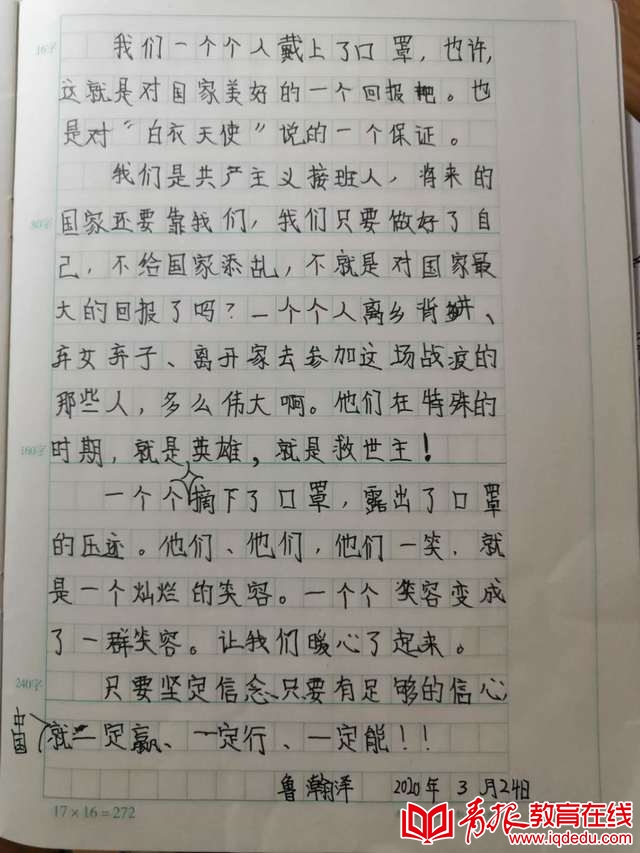 我们一个个人戴上了口罩，也许，
这就是对国家美好的一个回报吧。也
是对“白衣天使”说的一个保证。
我们是共产主义接班人，将来的
国家还要靠我们，我们只要做好了自
己，不给国家添乱，不就是对国家最
大的回报了吗？一个个人离乡背井、
弃女弃子、离开家去参加这场战疫的
那些人，多么伟大啊。他们在特殊的
时期，就是英雄，就是救世主！
一个个摘下了口罩，露出了口罩
的压迹。他们、他们，他们一笑，就
是一个灿烂的笑容。一个个笑容变成
了一群笑容。让我们暖心了起来。
只要坚定信念，只要有足够的信心
中国就一定赢、一定行、一定能！！
鲁瀚洋 2020年3月24日
16字
80字
160字
240字
17×16=272
青报教育在线
www.iqdedu.com